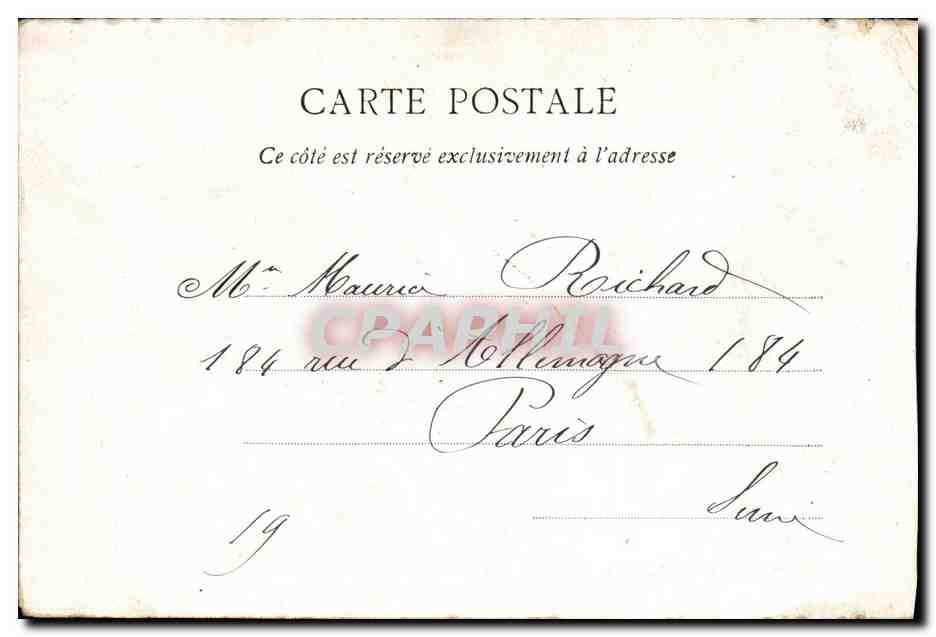 CARTE POSTALE
Ce côté est réservé exclusivement à l'adresse
Mr Maurice Richard
CPAPHIL
184 rue d'Allemagne 184
Paris
Seine
19